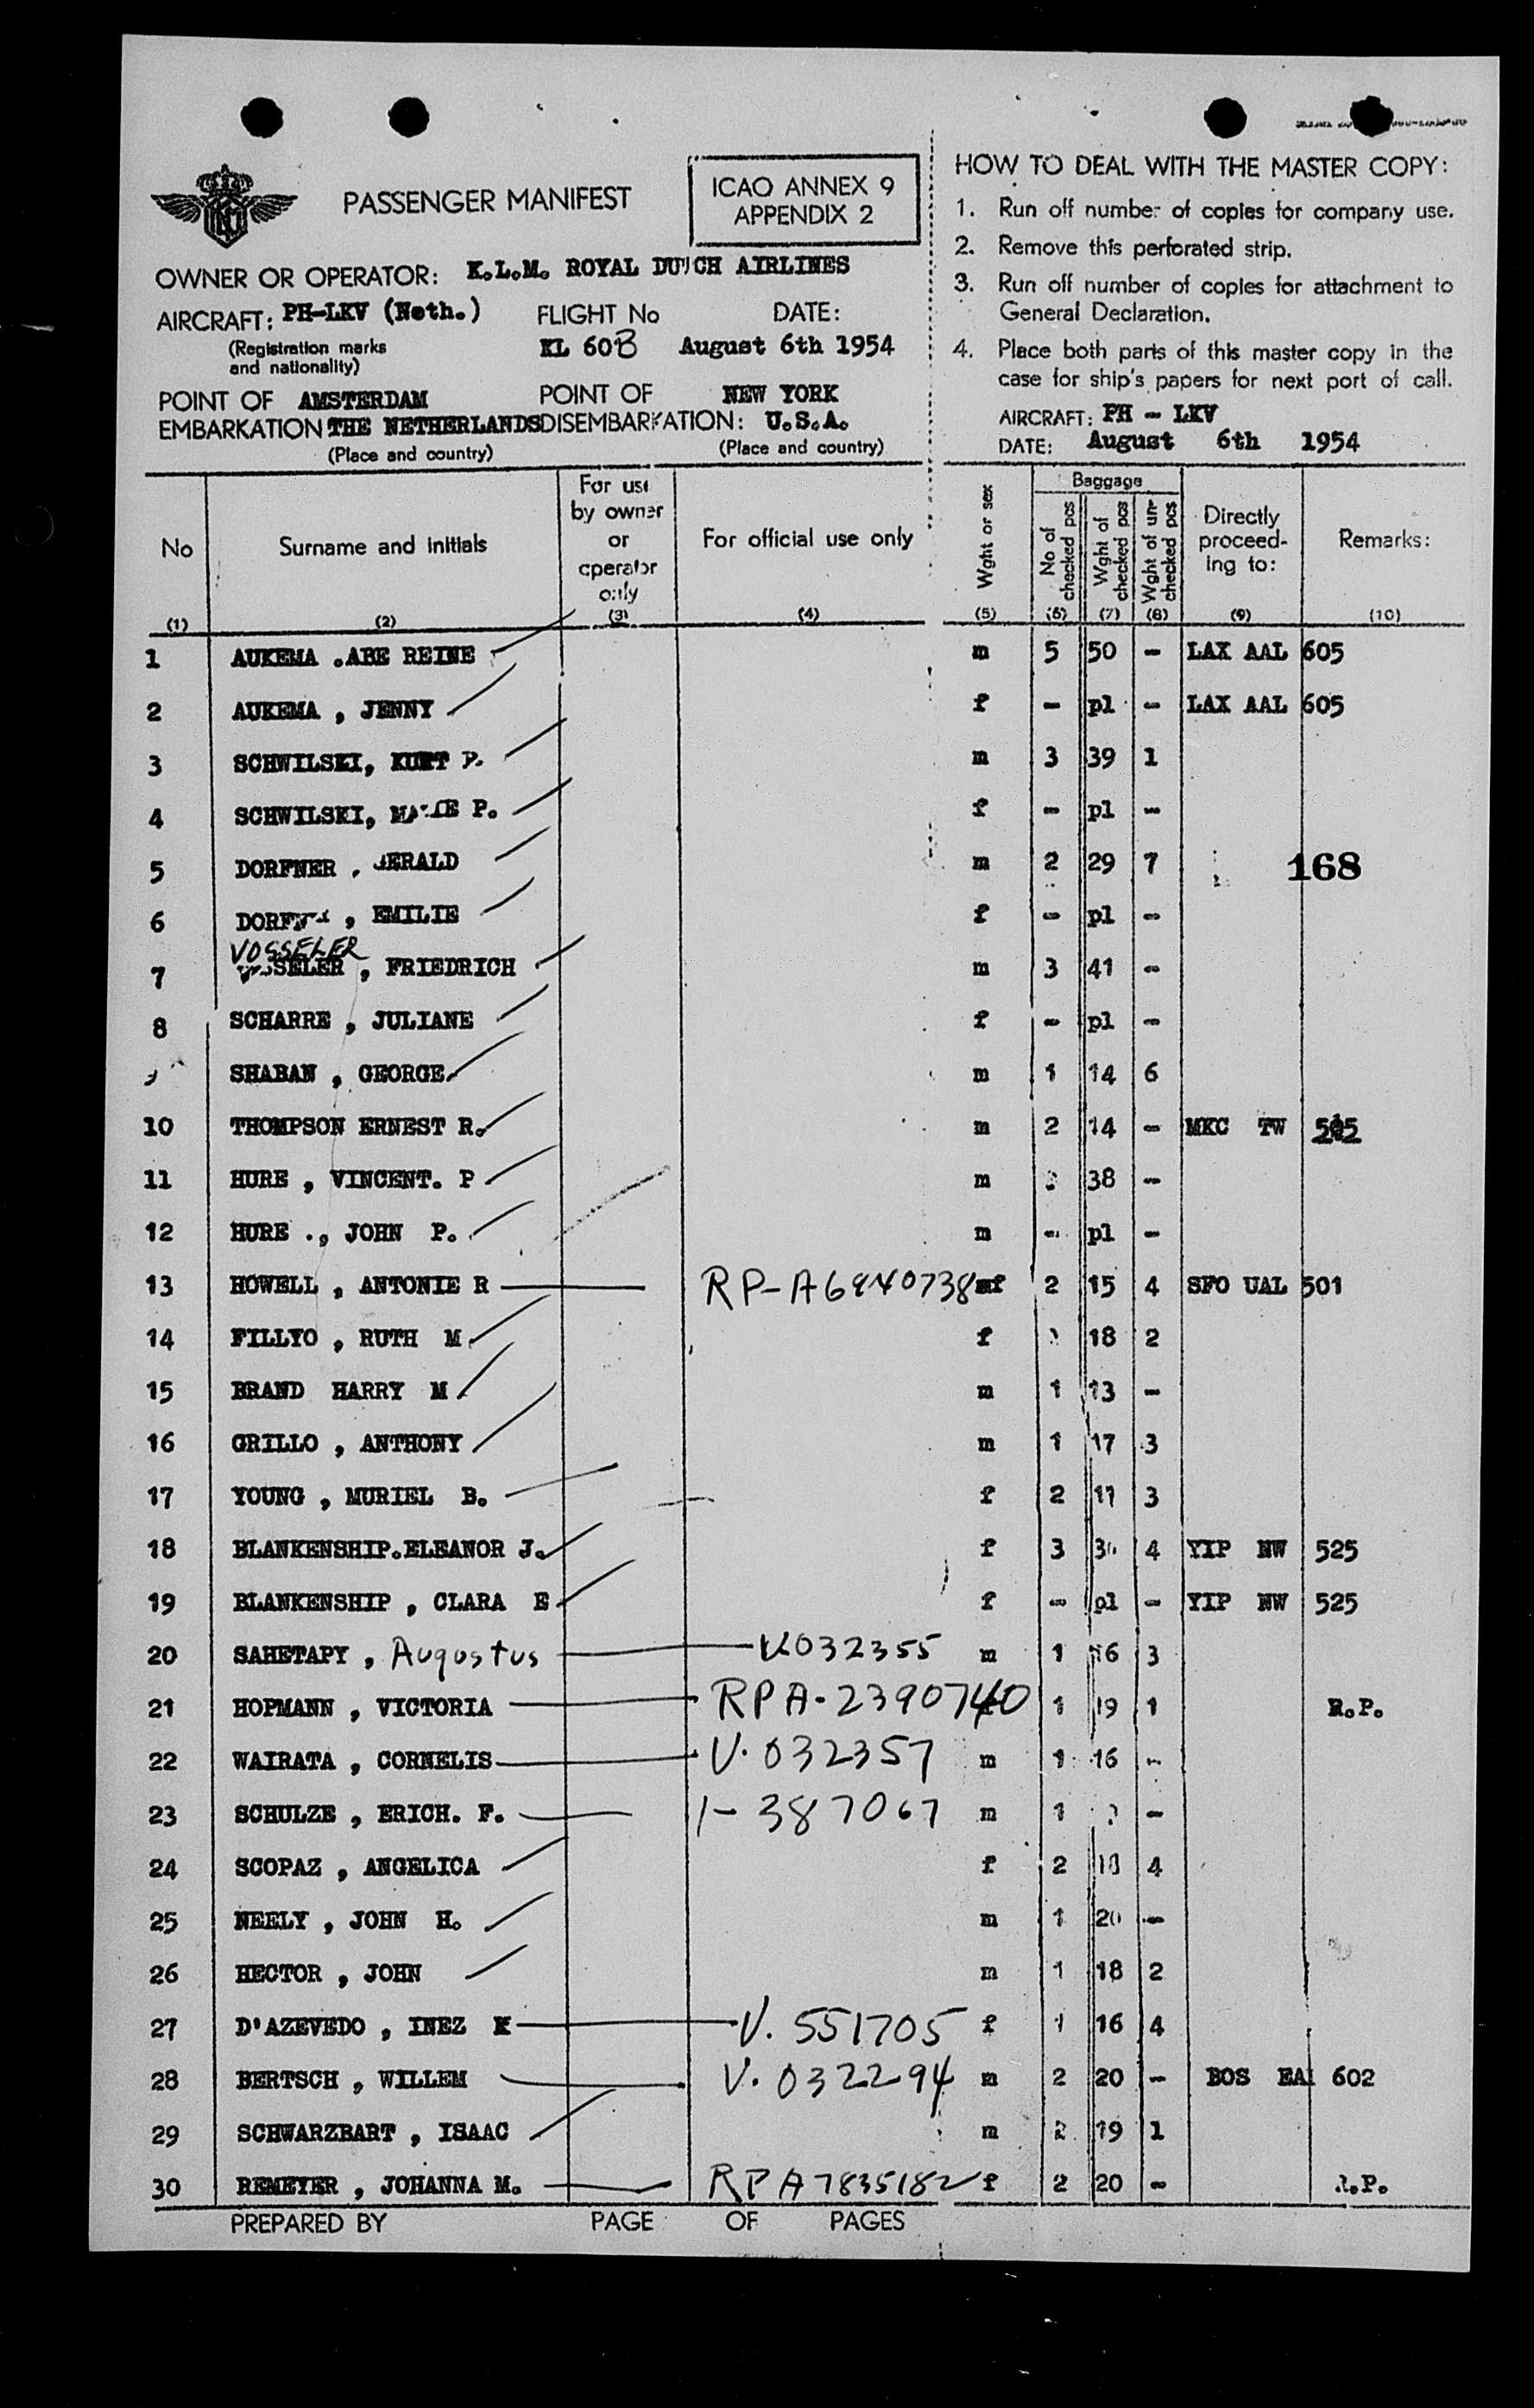 PASSENGER MANIFEST
ICAO ANNEX 9
APPENDIX 2
OWNER OR OPERATOR: K.L.M. ROYAL DUTCH AIRLINES
AIRCRAFT: PH-LKV (Neth.) FLIGHT No DATE:
(Registration marks and nationality) KL 60B August 6th 1954
POINT OF AMSTERDAM POINT OF NEW YORK
EMBARKATION THE NETHERLANDS DISEMBARKATION: U.S.A.
(Place and country) (Place and country)
HOW TO DEAL WITH THE MASTER COPY:
1. Run off number of copies for company use.
2. Remove this perforated strip.
3. Run off number of copies for attachment to
General Declaration.
4. Place both parts of this master copy in the
case for ship's papers for next port of call.
AIRCRAFT: PH - LKV
DATE: August 6th 1954
No Surname and initials For use by owner or operator only For official use only Wght or sex Baggage No of checked pcs Wght of checked pcs Wght of unchecked pcs Directly proceeding to: Remarks:
(1) (2) (3) (4) (5) (6) (7) (8) (9) (10)
1 AUKEMA .ABE REINE m 5 50 - LAX AAL 605
2 AUKEMA , JENNY f - pl - LAX AAL 605
3 SCHWILSKI, KURT P. m 3 39 1
4 SCHWILSKI, P. f - pl -
5 DORFNER , GERALD m 2 29 7 168
6 , EMILIE f - pl -
VOSSELER
7 , FRIEDRICH m 3 41 -
8 SCHARRE , JULIANE f - pl -
SHABAN , GEORGE m 1 14 6
10 THOMPSON ERNEST R. m 2 14 - MKC TW 505
11 HURE , VINCENT. P m 38 -
12 HURE ., JOHN P. m - pl -
13 HOWELL , ANTONIE R RP-A6840738 f 2 15 4 SFO UAL 501
14 FILLYO , RUTH M f 18 2
15 BRAND HARRY M m 1 13 -
16 GRILLO , ANTHONY m 1 17 3
17 YOUNG , MURIEL B. f 2 17 3
18 BLANKENSHIP.ELEANOR J. f 3 4 YIP NW 525
19 BLANKENSHIP , CLARA E f - pl - YIP NW 525
20 SAHETAPY , Augustus V032355 m 1 16 3
21 HOPMANN , VICTORIA RPA-2390740 1 19 1 R.P.
22 WAIRATA , CORNELIS V.032357 m 1 16 -
23 SCHULZE , ERICH. F. 1-387067 m 1 -
24 SCOPAZ , ANGELICA f 2 18 4
25 NEELY , JOHN H. m 1 20 -
26 HECTOR , JOHN m 1 18 2
27 D'AZEVEDO , INEZ K V. 551705 f 1 16 4
28 BERTSCH , WILLEM V. 032294 m 2 20 - BOS EAL 602
29 SCHWARZBART , ISAAC m 2 19 1
30 REMEYER , JOHANNA M. RPA7835182 f 2 20 - R.P.
PREPARED BY PAGE OF PAGES